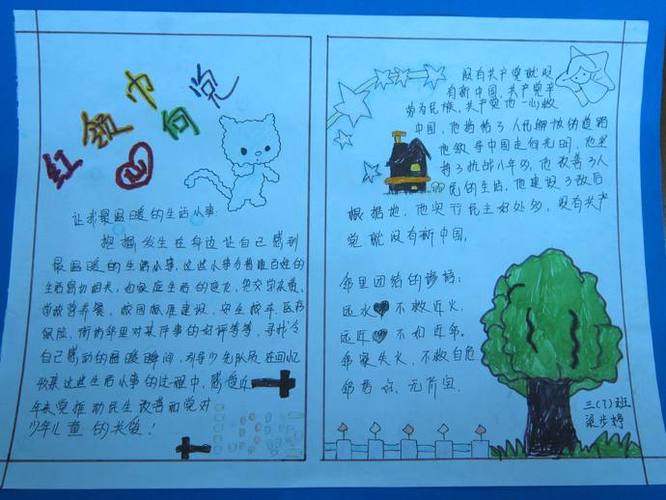 红领巾心向党
让我最温暖的生活小事:
把握发生在身边让自己感到
最温暖的生活小事,这些小事与普通百姓的
生活密切相关,如家庭生活的变化,
营养餐,校园标准建设,安全校车,医疗
保险,街坊邻里对某件事的好评等等,寻找令
自己感动的温暖瞬间,引导少先队员在回忆
收集这些生活小事的过程中,感受近
年来党推动民生改善和党对
少年儿童的关爱!
没有共产党就没
有新中国,共产党辛
劳为民族,共产党他一心救
中国,他指给了人民解放的道路
他领导中国走向光明,他坚
持了抗战八年多,他改善了人
民的生活,他建设了敌后
根据地,他实行民主好处多,没有共产
党就没有新中国,
邻里团结的谚语:
远水 不救近火.
远近 不如近邻.
邻家失火,不救自危
邻居好,无价宝.
三(7)班